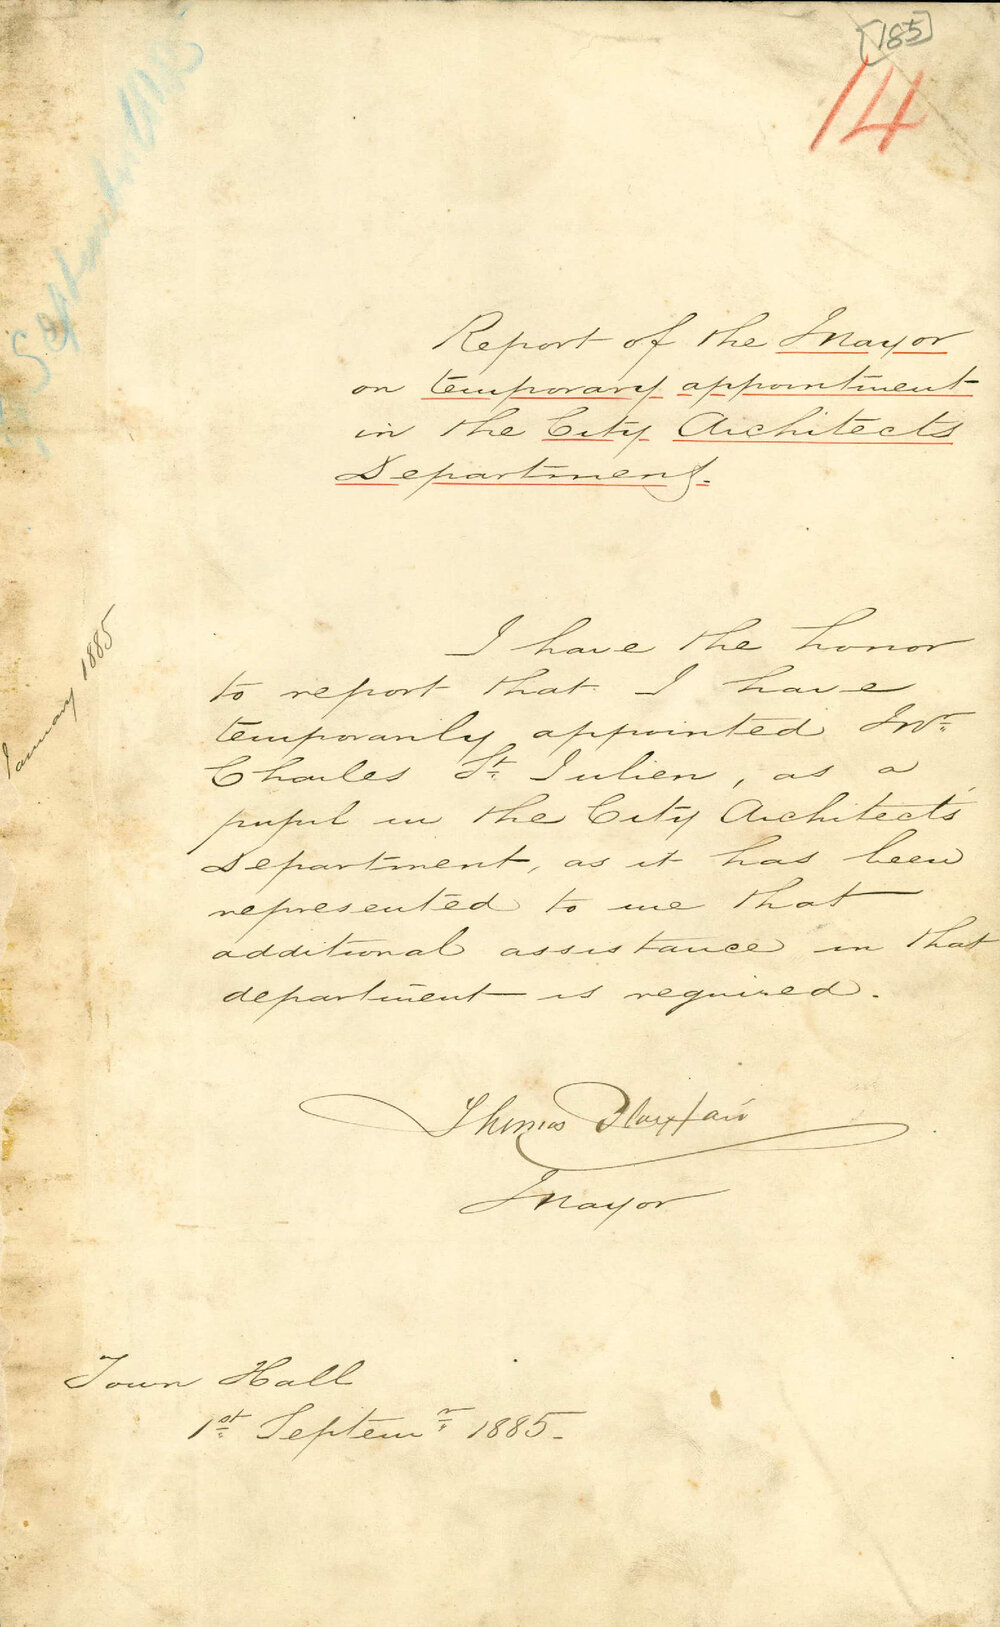 [185]
14
September 1885
Report of the Mayor
on temporary appointment
in the City Architects
Department.
January 1885
I have the honor
to report that I have
temporarily appointed Mr.
Charles St. Julien, as a
pupil in the City Architect's
Department, as it has been
represented to me that
additional assistance in that
department is required.
Thomas Playfair
Mayor
Town Hall
1st Septemr 1885.